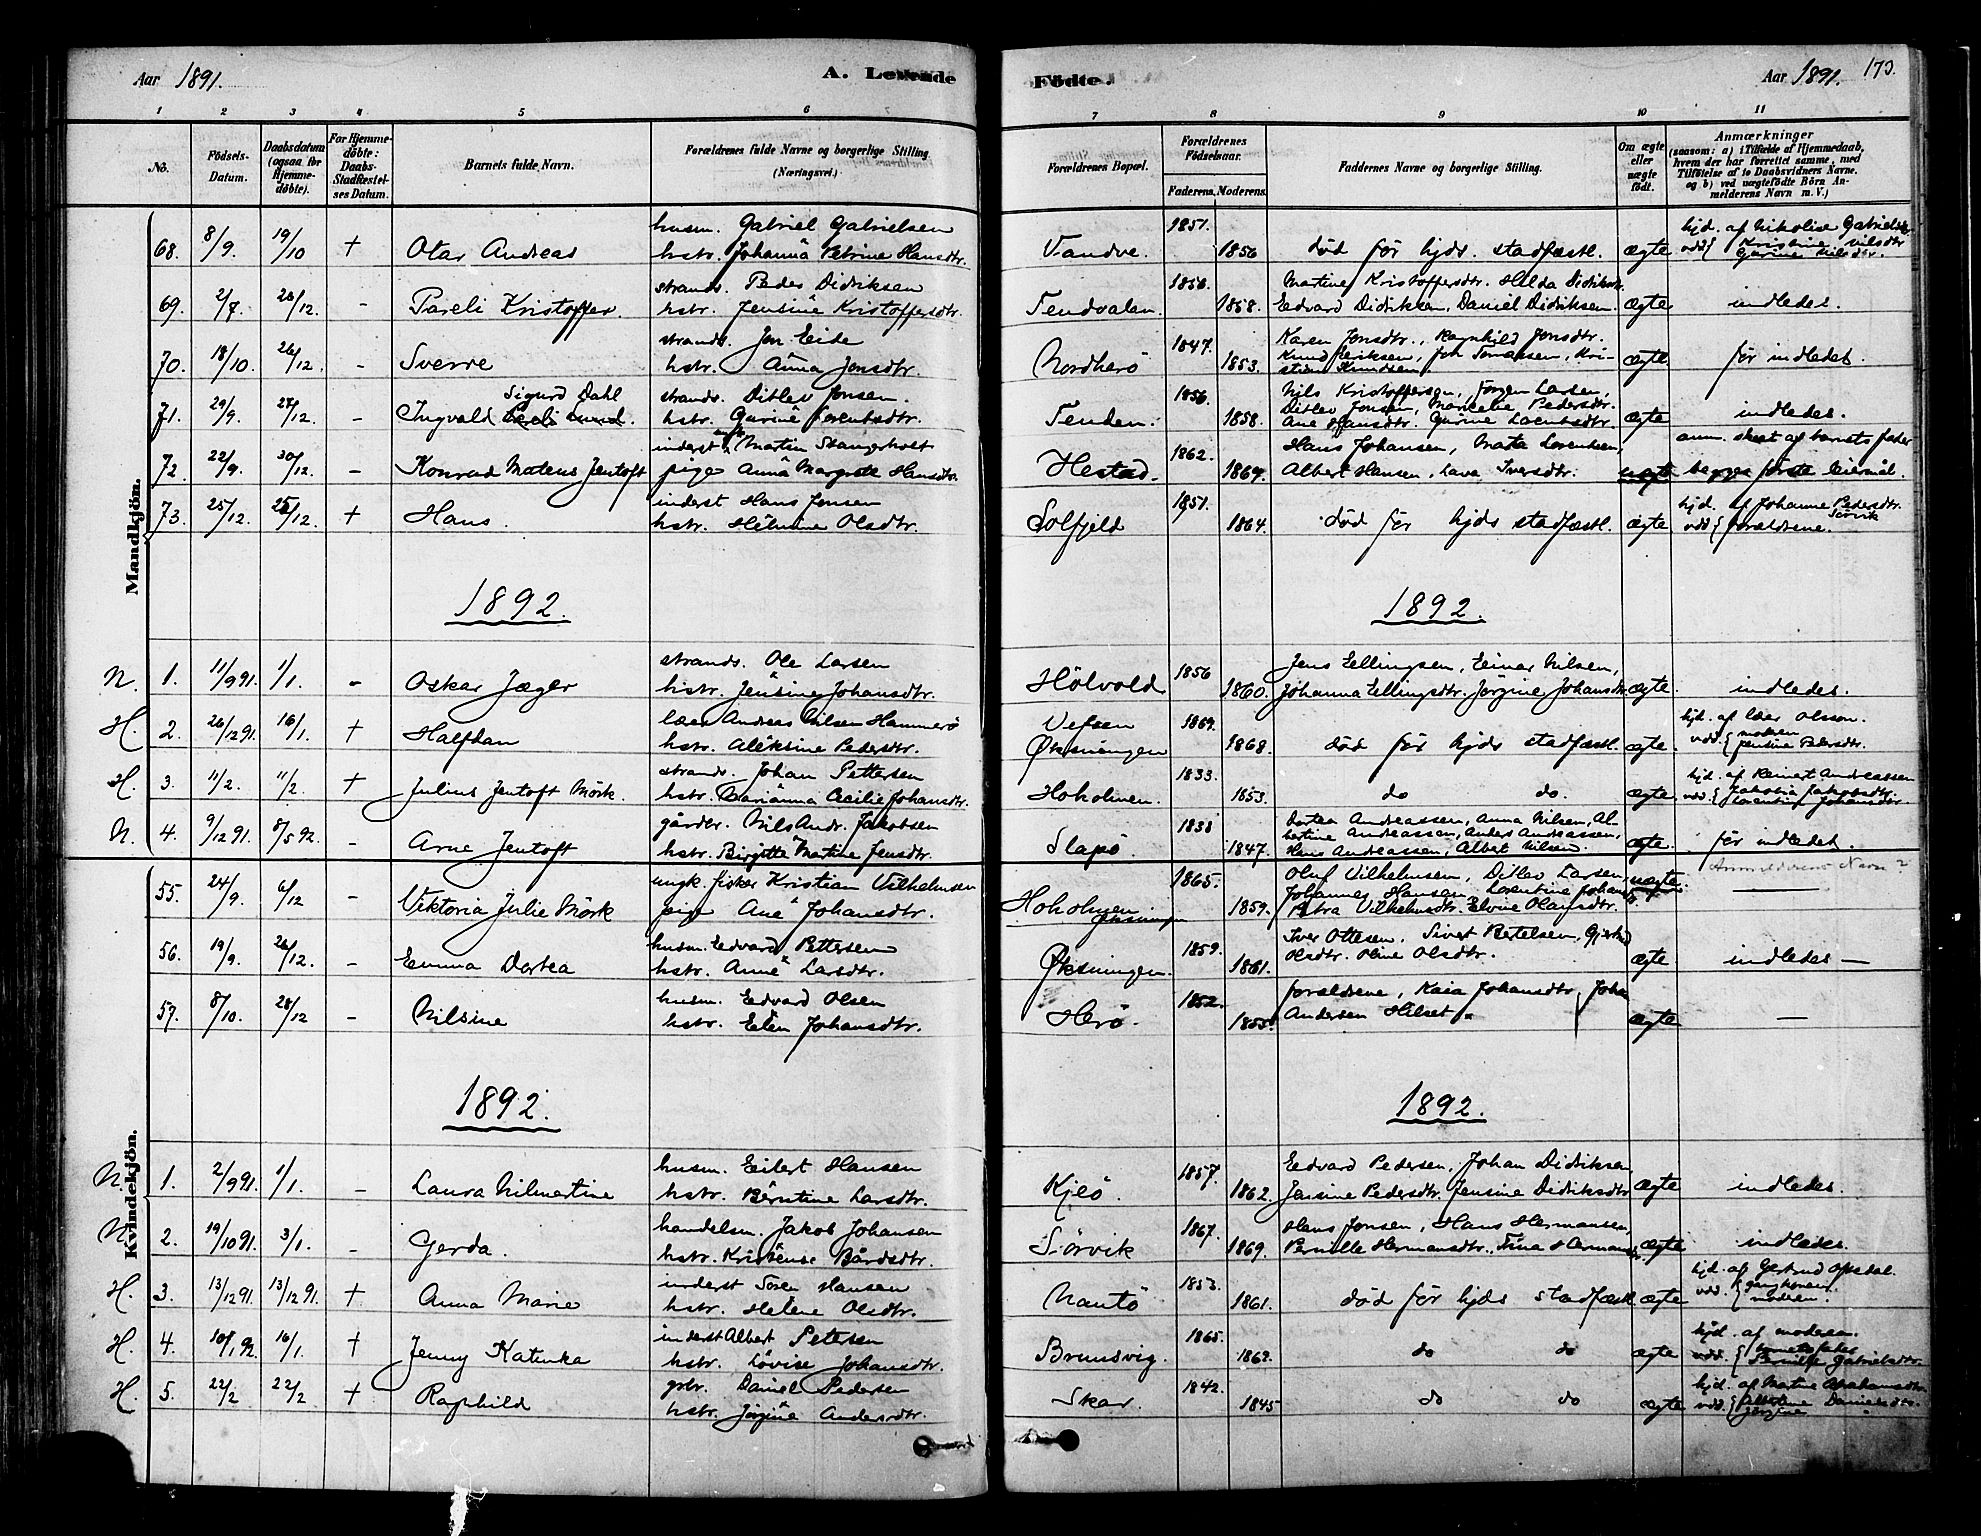 Aar 1891.
A. Levende
1 2 3 4 5 6
No.
Födsels-Datum.
Daabsdatum (ogsaa for Hjemme-döbte).
For Hjemme-döbte: Daabs-Stadfæstel-ses Datum.
Barnets fulde Navn.
Forældrenes fulde Navne og borgerlige Stilling (Næringsvei.)
Mandkjön.
husm. Gabriel Gabrielsen
68. 8/9. 19/10 + Otar Andreas hstr. Johanna Petrine Hansdtr.
strands. Peder Didriksen
69. 2/7. 28/12. - Pareli Kristoffer. hstr. Jensine Kristoffersdtr.
strands. Jon Eide
70. 18/10. 26/12. - Sverre hstr. Anna Jonsdtr.
Sigurd Dahl strands. Ditlev Jonsen.
71. 29/9. 27/12. - Ingvald hstr. Gurine Lorentsdtr.
inderst Martin Stangerholt
72. 22/9. 30/12. - Konrad Mateus Jentoft pige Anna Margrete Hansdtr.
inderst Hans Jensen
73. 25/12. 25/12. + Hans. hstr. Helmine Olsdtr.
1892.
strands. Ole Larsen
N. 1. 11/9 91. 1/1. - Oskar Jæger hstr. Jensine Johansdtr.
lær Andreas Nilsen Hammerö
H. 2. 26/12 91. 16/1. + Halfdan hstr. Aleksine Pedersdtr.
strands. Johan Pettersen
H. 3. 11/2. 11/2 + Julius Jentoft Mörk. hstr. Marianna Cecilie Johansdtr.
gårdbr. Nils Andr. Jakobsen
N. 4. 9/12 91. 8/5 92. - Arne Jentoft hstr. Birgitte Martine Jensdtr.
Kvindekjön.
ungk. fisker Kristian Vilhelmsen
55. 24/9. 6/12 - Viktoria Julie Mörk pige Ane Johansdtr.
husm. Edvard Pettersen
56. 19/9. 26/12. - Emma Dortea hstr. Anne Larsdtr.
husm. Edvard Olsen
57. 8/10. 28/12 - Nilsine hstr. Elen Johansdtr.
1892.
husm. Eilert Hansen
N. 1. 2/9 91. 1/1. - Laura Nilmartine hstr. Berntine Larsdtr.
handelsm. Jakob Johansen
N. 2. 19/10 91. 3/1. - Gerda. hstr. Kristense Bårdsdtr.
inderst Sören Hansen
H. 3. 13/12 91. 13/12 91. + Anna Marie hstr. Helene Olsdtr.
inderst Albert Petersen
H. 4. 10/1 92. 16/1. + Jenny Katinka hstr. Lovise Johansdtr.
gbr. Daniel Pedersen
H. 5. 22/2 22/2 + Raghild hstr. Jörgine Andersdtr.
Födte.
Aar 1891. 173.
7 8 9 10 11
Forældrenes Bopæl.
Forældrenes Födselsaar.
Faderens. Moderens.
Faddernes Navne og borgerlige Stilling.
Om ægte eller uægte födt.
Anmærkninger
(saasom: a) i Tilfælde af Hjemmedaab, hvem der har forrettet samme, med Tilföielse af to Daabsvidners Navne, og b) ved uægtefödte Börn Anmelderens Navn m. V.)
1851. hjd. af Nikoline Gabrielsdtr
Vandve. 1856 död för hjds. stadfæstl. ægte vdd { Kristine Nilsdtr Gurine Nilsdtr.
1856. Martine Kristoffersdtr. Hilda Didriksdtr.
Tendvalen. 1858. Edvard Didriksen, Daniel Didriksen. ægte indledet.
1847. Karen Jonsdtr., Ragnhild Jonsdtr.
Nordherö 1853. Knud Eriksen, Joh Tomassen, Kristian Knudsen ægte för indledet.
1856. Nils Kristoffersen, Jörgen Larsen,
Tenden. 1858. Ditlev Jonsen, Marcelie Pedersdtr. Ane Hansdtr. Gurine Lorentsdtr. ægte indledet.
1862. Hans Johansen, Mata Lorentsen, anm. skeet af barnets fader
Hestad. 1867. Albert Hansen, Lava Iversdtr. uægte begges förste leiermål.
1851. hjd. af Johanne Pedersdtr. Sörvik
Solfjeld 1864. död för hjds stadfæstl. ægte vdd { forældrene.
1892.
1856 Jens Ellingsen, Einar Nilsen,
Hölvold 1860. Johanna Ellingsdtr. Jörgine Johansdtr ægte indledet.
Vefsen 1869. hjd. af lær Olson.
Øksningen 1868. död för hjds stadfæstl. ægte. vdd. { moderen Jensine Pedersdtr.
1833. hjd. af Reinert Andreassen
Hoholmen. 1853. do do. ægte. vdd. { Jakobia Jakobsdtr. Lorentine Johansdtr.
1838 Dortea Andreassen, Anna Nilsen, Al-
Slapö. 1847. bertine Andreassen, Anders Andreassen, Hans Andreassen, Albert Nilsen. ægte för indledet.
Anmelderens Navn?
1865. Oluf Vilhelmsen, Ditlev Larsen, uægte
Hoholmen Øksningen 1859. Johannes Hansen, Lorentine Johansdtr. Petra Vilhelmsdtr. Elvine Olausdtr. —
1859. Iver Ottesen. Sivert Bertelsen, Gjertrud
Øksningen. 1861. Olsdtr. Oline Olsdtr. ægte indledet —
1852. forældrene, Kaia Johansdtr, Johan
Herö. 1855. Andersen Hilset. ægte —
1892.
1857. Edvard Pedersen, Johan Didriksen,
Kjeö. 1862. Jensine Pedersdtr. Jensine Didriksdtr ægte indledet.
1867. Hans Jonsen, Hans Hermansen,
Sörvik 1869. Pernille Hermansdtr., Tina Hermansdtr. ægte indledet.
1853. hjd. af Gertrud Opsdal.
Nantö 1861. död för hjds stadfæstl. ægte vdd. { gangkonen moderen.
1865. hjd. af moderen.
Brunsvig. 1862. do do ægte vdd. { barnets fader Pernille Gabrielsdtr.
1842. hjd. af Martine Abrahamsdtr.
Skar. 1845 do do ægte vdd. { Albertine Danielsdtr. Jörgine